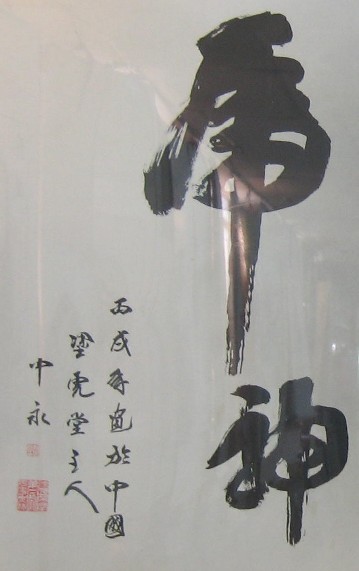 虎神
丙戌年 於中國
虎堂主人
中永